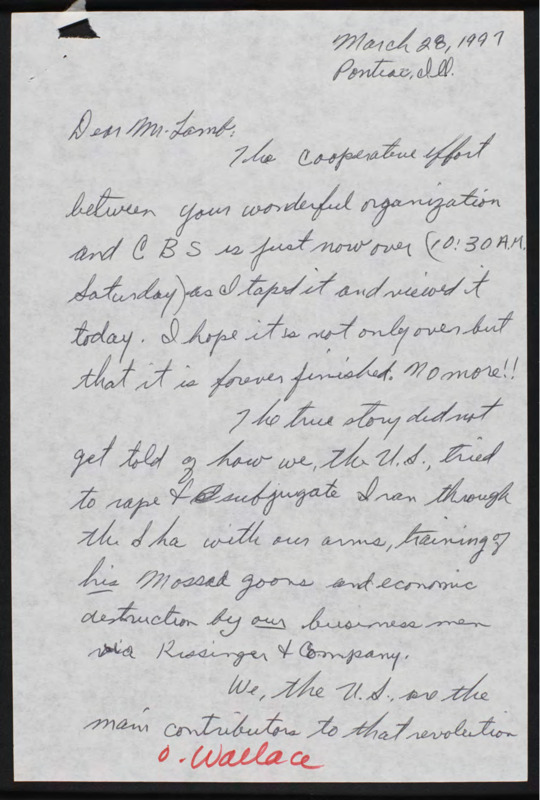 March 28, 1997
Pontiac, Ill.
Dear Mr. Lamb:
The cooperative effort
between your wonderful organization
and C B S is just now over (10:30 A.M.
Saturday) as I taped it and viewed it
today. I hope it is not only over but
that it is forever finished. No more!!
The true story did not
get told of how we, the U.S., tried
to rape & subjugate Iran through
the Sha with our arms, training of
his Mossad goons and economic
destruction by our business men
via Kissinger & Company.
We, the U.S., are the
main contributors to that revolution
O. Wallace